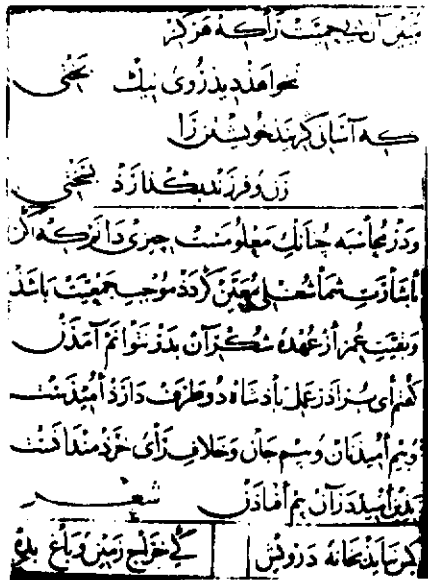 مبین آن بی حمیت را که هرگز
نخواهذ دیذ روی نیک بختی
که آسانی گزیند خویشتن را
زن و فرزند بگذارذ بسختی
و در محاسبه چنانک معلومست چیزی دانم که اگر
باشارت شما شغلی معین گردذ موجب جمعیت باشذ
و بقیت عمر از عهده شکر آن بدر نتوانم آمذن
گفتم ای براذر عمل پاذشاه دو طرف دارذ امیذست
و بیم امیذ نان و بیم جان و خلاف رای خردمندانست
بذین امیذ در آن بیم افتاذن شعر
کس نیایذ بخانه درویش
که خراج زمین و باغ بده